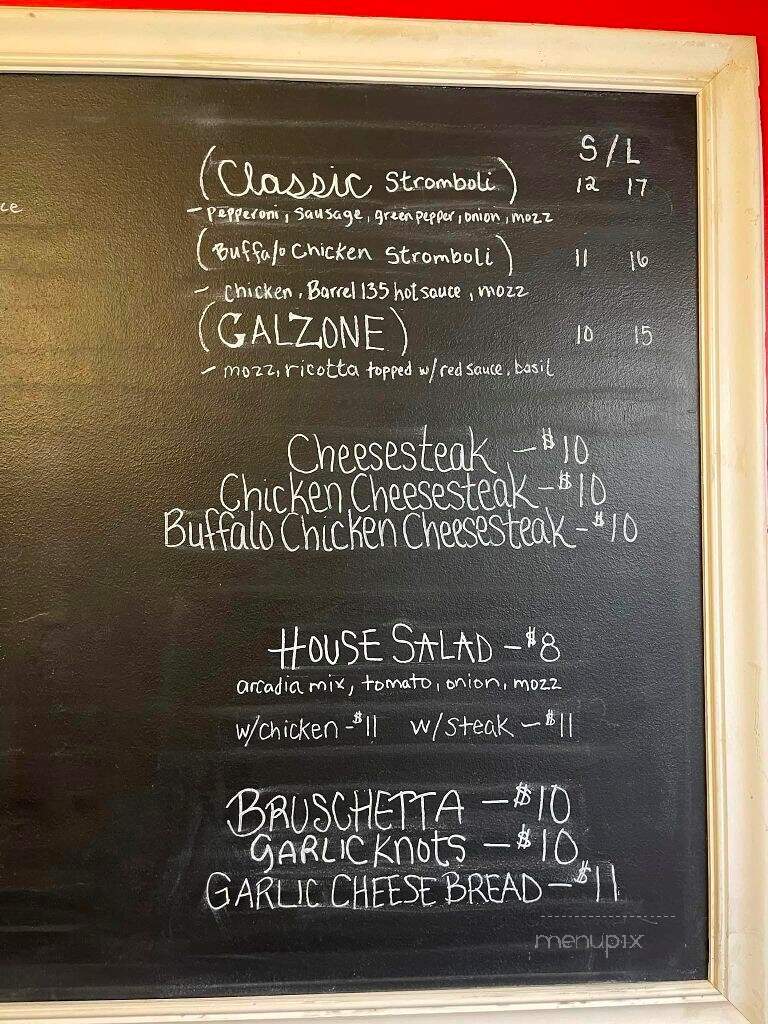 S/L
(Classic Stromboli) 12 17
- pepperoni, sausage, green pepper, onion, mozz
ce
(Buffalo Chicken Stromboli) 11 16
- chicken, Barrel 135 hot sauce, mozz
(GALZONE) 10 15
- mozz, ricotta topped w/ red sauce, basil
Cheesesteak - $10
Chicken Cheesesteak - $10
Buffalo Chicken Cheesesteak - $10
HOUSE SALAD - $8
arcadia mix, tomato, onion, mozz
w/chicken - $11 w/steak - $11
BRUSCHETTA - $10
GARLIC KNOTS - $10
GARLIC CHEESE BREAD - $11
menupix